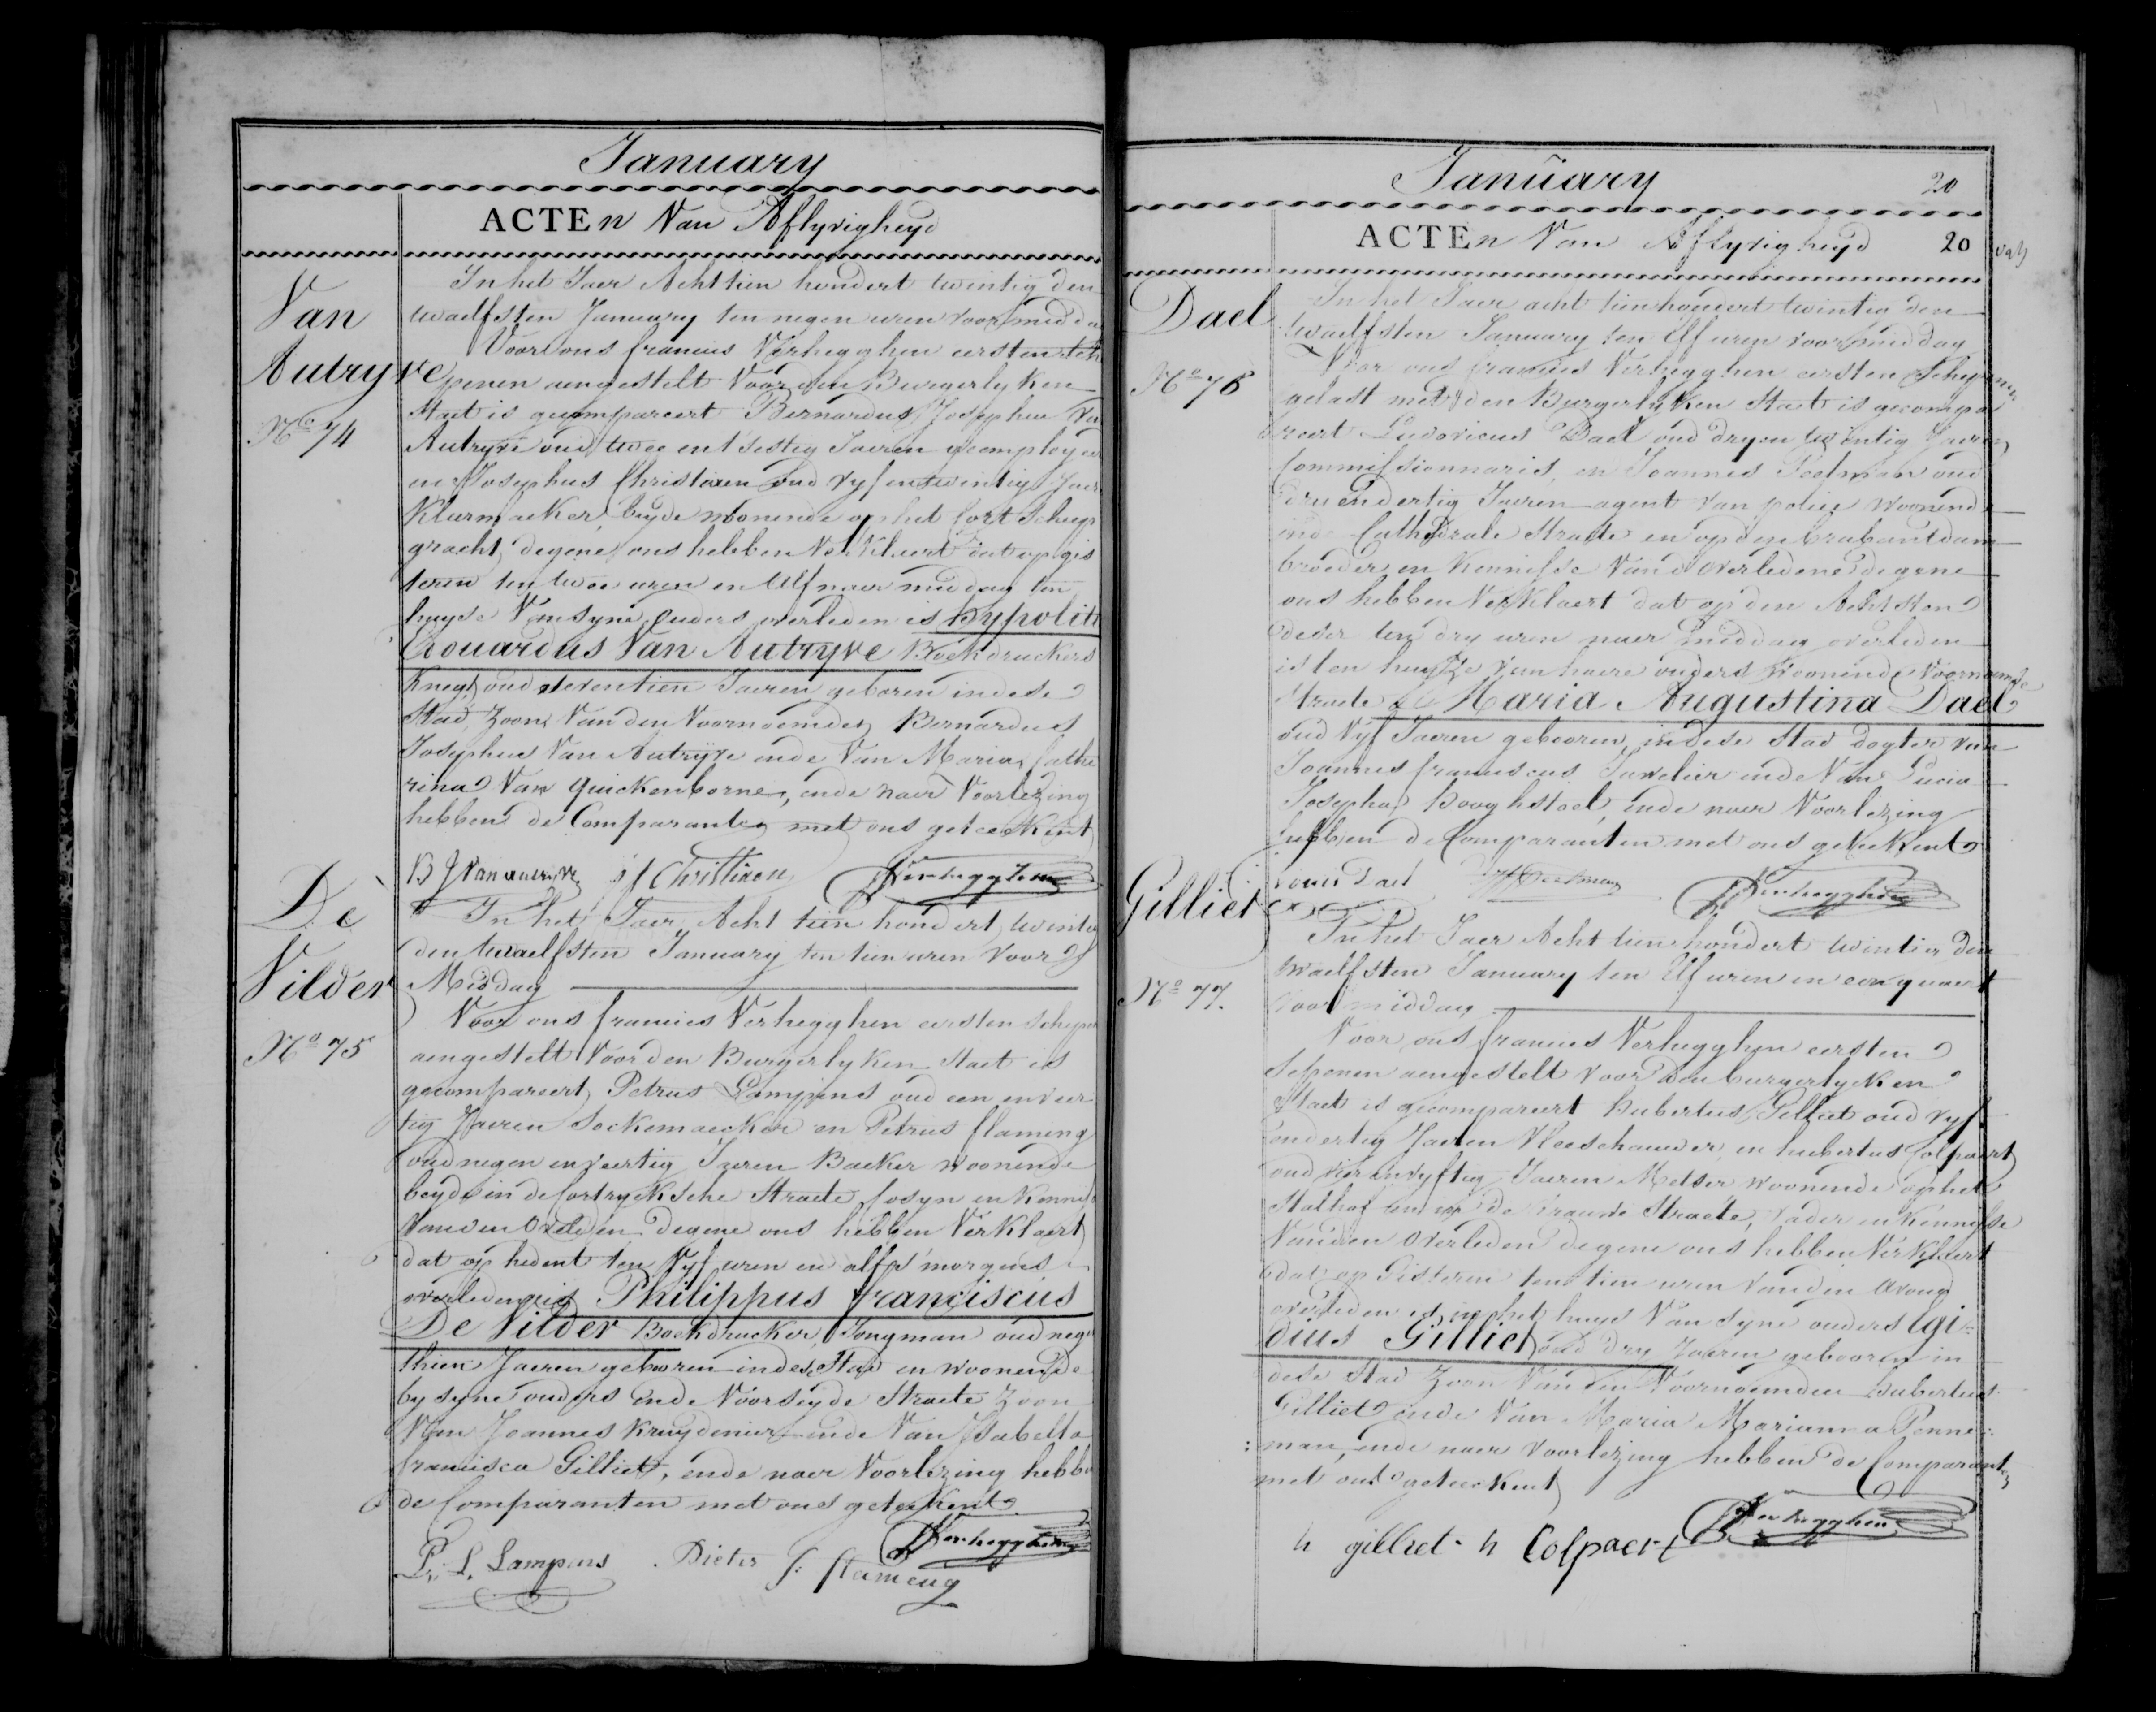 January
ACTEn Van Aflyvigheyd
Van
Autryve
N.º 74
In het Jaer Acht tien hondert twintig den
twaelfsten January ten negen uren voor midda
Voor ons francies Verhegghen eersten sche
penen aengestelt voor den Burgerlyken
Staet is gecompareert Bernardus Josephus Van
Autryve oud twee en t'sestig Jaeren geemployeer
en Josephus Christiaen oud vyf en twintig Jaer
Kleermaeker, beyde woonende op het fort Scheep
gracht, degene ons hebben verklaert dat op gis
teren ten twee uren en alf naer middag ten
huyse van syne ouders overleden is Hypolite
Edouardus Van Autryve Boekdruckers
Knegt, oud seventien Jaeren geboren in dese
Stad, zoone van den voornoemden Bernardus
Josephus Van Autryve ende van Maria Cathe
rina Van Quickenborne, ende naer Voorlezing
hebben de Comparanten met ons geteekent
B J Van autryve J f Christiaen Verhegghen
De
Vilder
N.º 75
In het Jaer Acht tien hondert twintig
den twaelfsten January ten tien uren voor
Middag
Voor ons francies Verhegghen eersten schepen
aengestelt voor den Burgerlyken Staet is
gecompareert Petrus Lampens oud een en veer
tig Jaeren Sockemaecker en Petrus flameng
oud negen en veertig Jaeren Backer woonende
beyde in de Cortryksche Straete Cosyn en kennis
van den overleden degene ons hebben verklaert
dat op hedent ten vyf uren en alf s'morgens
overleden is Philippus franciscus
De Vilder Boekdrucker, Jongman oud nege
thien Jaeren geboren in dese Stad en woonende
by syne ouders in de voorseyde Straete zoon
van Joannes Kruydenier ende van Isabella
francisca Gilliet, ende naer Voorlezing hebben
de Comparanten met ons geteekent
P. L. Lampens Pieter f. flameng Verhegghen
January 20
ACTEn Van Aflyvigheyd 20
Dael
N.º 76
In het Jaer acht tien hondert twintig den
twaelfsten January ten Elf uren voormiddag
Voor ons francies Verhegghen eersten Schepenen
gelast met den Burgerlyken Staet is gecompa
reert Ludovicus Dael oud dry en twintig Jaeren
Commissionnaris, en Joannes oud
dry en dertig Jaeren agent van police woonende
in de Cathedrale Straete en op den brabantdam
broeder en kennisse van d'overledene degene
ons hebben verklaert dat op den Achtsten
deser ten dry uren naer middag overleden
is ten huyse van haere ouders woonende voornoemde
Straete Maria Augustina Dael
oud vyf Jaeren gebooren in dese Stad dogter van
Joannes franciscus Juvelier ende van Lucia
Josepha Hooghstoel, ende naer Voorlezing
hebben de Comparanten met ons geteekent
Louis Dael Verhegghen
Gilliet
N.º 77.
In het Jaer Acht tien hondert twintig den
twaelfsten January ten Elf uren en een quaert
voormiddag
Voor ons francies Verhegghen eersten
Schepenen aengestelt voor den burgerlycken
Staet is gecompareert Hubertus Gilliet oud vyf
en dertig Jaeren Vleeschauwer, en hubertus Colpaert
oud vier en vyftig Jaeren Metser woonende op het
Stalhof en in de Straete, Vader en kennisse
van den overleden degene ons hebben verklaert
dat op Gisteren ten tien uren van den avond
overleden is in het huys van syne ouders Egi=
dius Gilliet oud dry Jaeren gebooren in
dese Stad zoon van den voornoemden Hubertus
Gilliet ende van Maria Marianna Penne=
:man, ende naer voorlezing hebben de Comparanten
met ons geteekent
h gilliet. h Colpaert Verhegghen